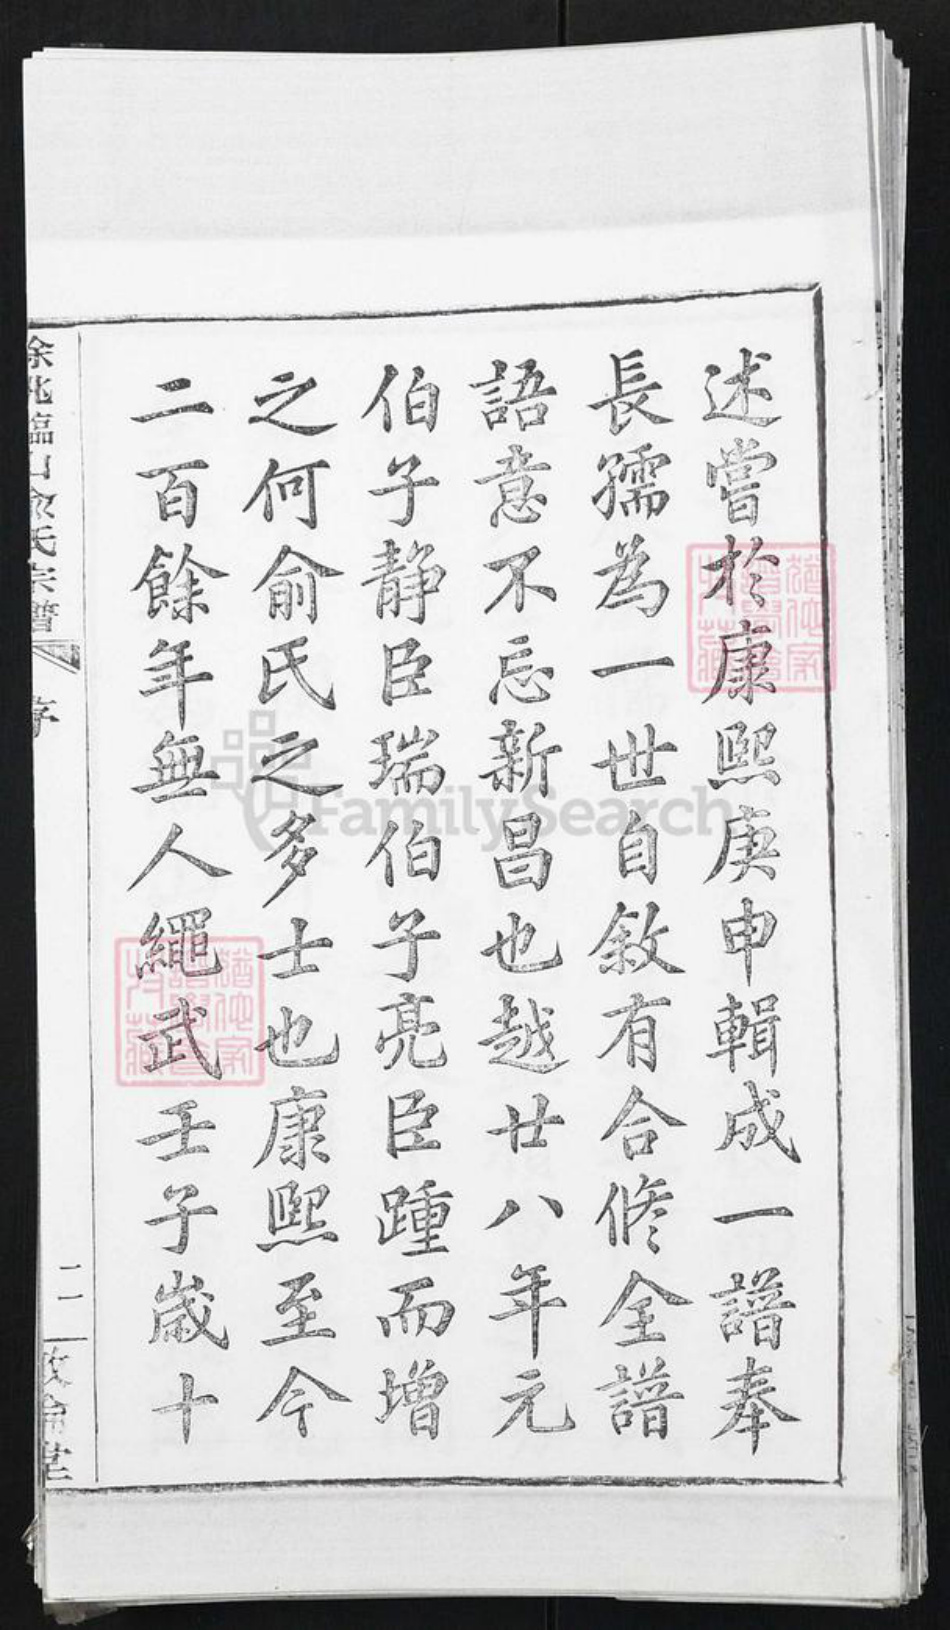 述嘗於康熙庚申輯成一譜奉
長孺為一世自敘有合修全譜
語意不忘新昌也越廿八年元
伯子静臣瑞伯子亮臣踵而增
之何俞氏之多士也康熙至今
二百餘年無人繩武壬子歲十
臨山俞氏宗譜
序
二
FamilySearch